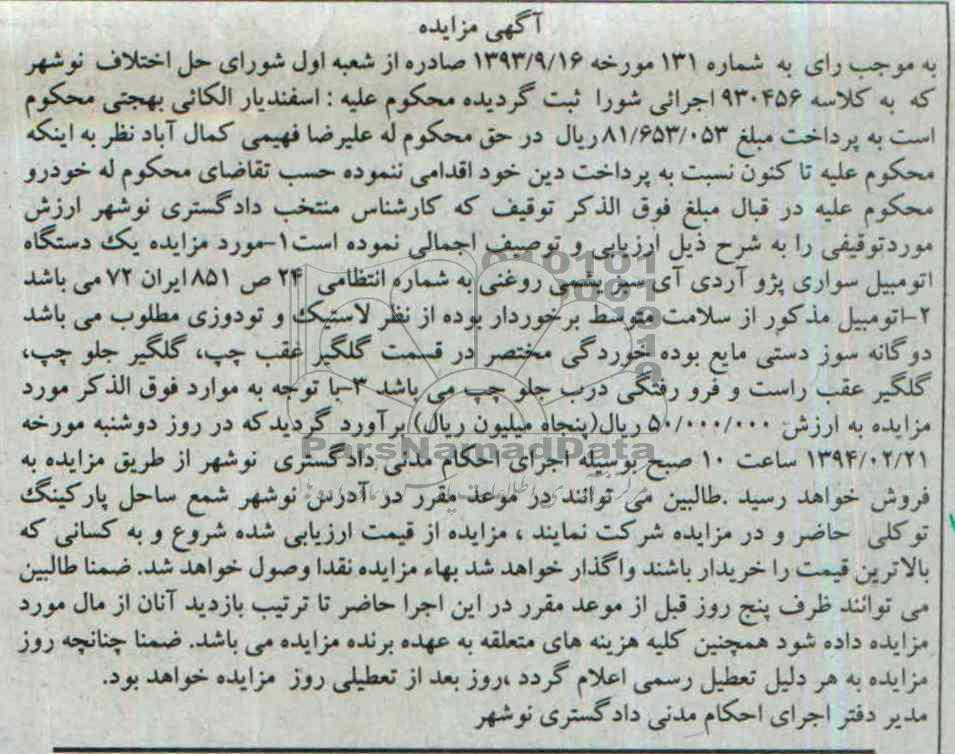 آگهی مزایده
به موجب رای به شماره ۱۳۱ مورخه ۱۳۹۳/۹/۱۶ صادره از شعبه اول شورای حل اختلاف نوشهر
که به کلاسه ۹۳۰۴۵۶ اجرائی شورا ثبت گردیده محکوم علیه : اسفندیار الکائی بهجتی محکوم
است به پرداخت مبلغ ۸۱/۶۵۳/۰۵۳ ریال در حق محکوم له علیرضا فهیمی کمال آباد نظر به اینکه
محکوم علیه تا کنون نسبت به پرداخت دین خود اقدامی ننموده حسب تقاضای محکوم له خودرو
محکوم علیه در قبال مبلغ فوق الذکر توقیف که کارشناس منتخب دادگستری نوشهر ارزش
موردتوقیفی را به شرح ذیل ارزیابی و توصیف اجمالی نموده است۱-مورد مزایده یک دستگاه
اتومبیل سواری پژو آردی آی سبز یشمی روغنی به شماره انتظامی ۲۴ ص ۸۵۱ ایران ۷۲ می باشد
۲-اتومبیل مذکور از سلامت متوسط برخوردار بوده از نظر لاستیک و تودوزی مطلوب می باشد
دوگانه سوز دستی مایع بوده خوردگی مختصر در قسمت گلگیر عقب چپ، گلگیر جلو چپ،
گلگیر عقب راست و فرو رفتگی درب جلو چپ می باشد ۳-با توجه به موارد فوق الذکر مورد
مزایده به ارزش ۵۰/۰۰۰/۰۰۰ ریال(پنجاه میلیون ریال) برآورد گردیدکه در روز دوشنبه مورخه
ParsNamadData
۱۳۹۴/۰۲/۲۱ ساعت ۱۰ صبح بوسیله اجرای احکام مدنی دادگستری نوشهر از طریق مزایده به
فروش خواهد رسید .طالبین می توانند در موعد مقرر در آدرس نوشهر شمع ساحل پارکینگ
توکلی حاضر و در مزایده شرکت نمایند ، مزایده از قیمت ارزیابی شده شروع و به کسانی که
بالاترین قیمت را خریدار باشند واگذار خواهد شد بهاء مزایده نقدا وصول خواهد شد. ضمنا طالبین
می توانند ظرف پنج روز قبل از موعد مقرر در این اجرا حاضر تا ترتیب بازدید آنان از مال مورد
مزایده داده شود همچنین کلیه هزینه های متعلقه به عهده برنده مزایده می باشد. ضمنا چنانچه روز
مزایده به هر دلیل تعطیل رسمی اعلام گردد ،روز بعد از تعطیلی روز مزایده خواهد بود.
مدیر دفتر اجرای احکام مدنی دادگستری نوشهر